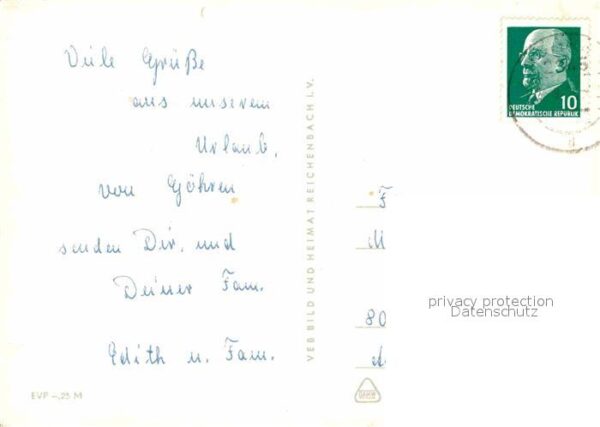 Viele Grüße
aus unserem
Urlaub,
von Göhren
senden Dir, und
Deiner Fam.
Edith u. Fam.
EVP –,25 M
VEB BILD UND HEIMAT REICHENBACH I. V.
10
DEUTSCHE
DEMOKRATISCHE REPUBLIK
F
M
80
privacy protection
Datenschutz